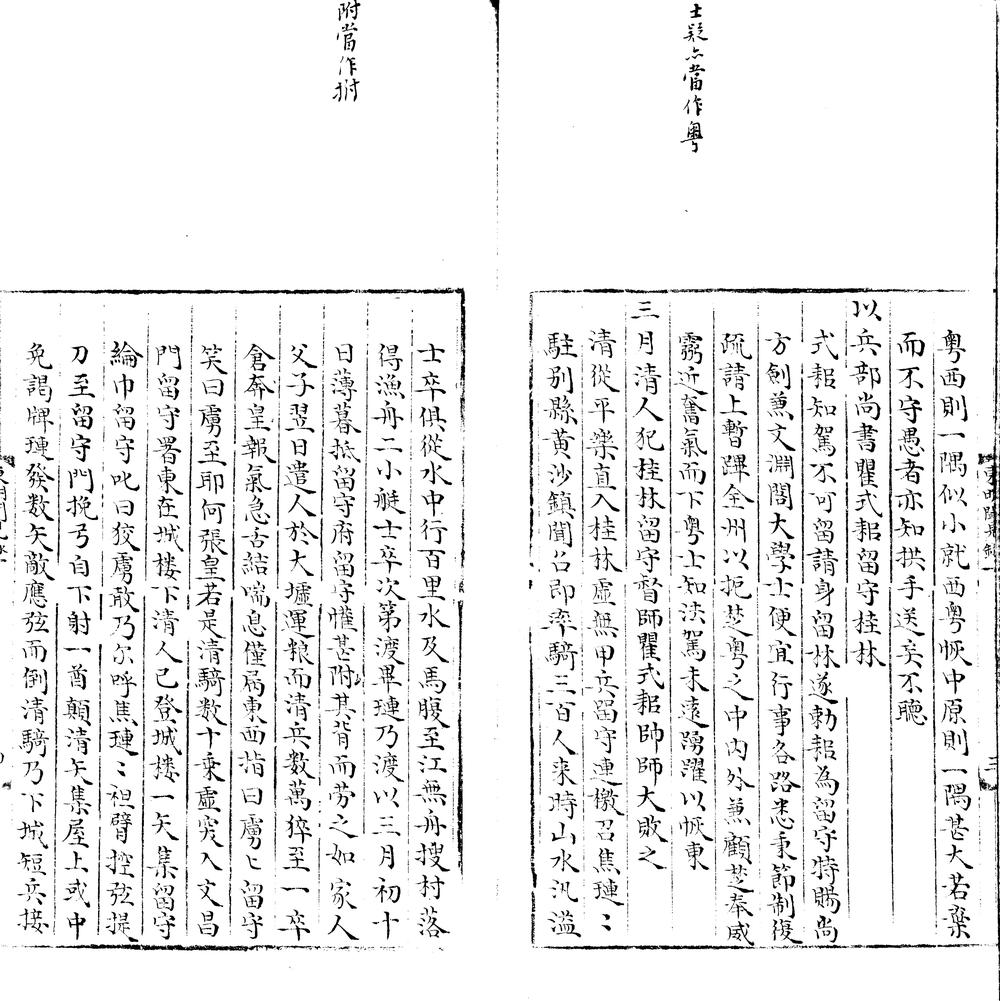 士疑亦當作粵
粵西則一隅似小就西粵恢中原則一隅甚大若棄
而不守愚者亦知拱手送矣不聽
以兵部尚書瞿式耜留守桂林
式耜知駕不可留請身留林遂勅耜為留守特賜尚
方劍兼文淵閣大學士便宜行事各路悉秉節制復
疏請上暫蹕全州以扼楚粵之中內外兼顧楚奉威
靈近奮氣而下粵士知法駕未遠踴躍以恢東
三月清人犯桂林留守督師瞿式耜帥師大敗之
清從平樂直入桂林虛無甲兵留守連檄召焦璉〻
駐別縣黃沙鎮聞召即率騎三百人来時山水汎濫
附當作拊
士卒俱從水中行百里水及馬腹至江無舟搜村落
得漁舟二小艇士卒次第渡畢璉乃渡以三月初十
日薄暮抵留守府留守懽甚附其背而劳之如家人
父子翌日遣人於大墟運粮而清兵数萬猝至一卒
倉奔皇報氣急舌結喘息僅屬東西指曰虜〻留守
笑曰虜至耶何張皇若是清騎数十乗虛突入文昌
門留守署東在城楼下清人已登城楼一矢集留守
綸巾留守叱曰狡虜敢乃尔呼焦璉〻袒臂控弦提
刀至留守門挽弓自下射一酋顛清矢集屋上或中
免謁牌璉發数矢敵應弦而倒清騎乃下城短兵接